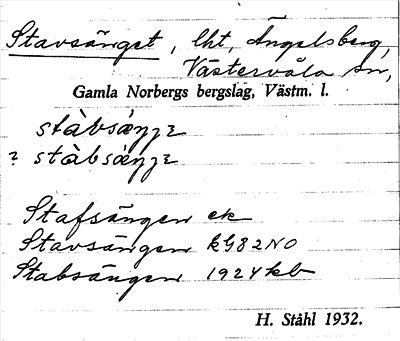 Stavsänget, lht, Ängelsberg,
Västervåla sn,
Gamla Norbergs bergslag, Västm. l.
stàvsäŋ̀ʒɛ
? stàbsäŋ̀ʒɛ
Stafsängen ek
Stavsängen kG82NO
Stabsängen 1924 kb
H. Ståhl 1932.